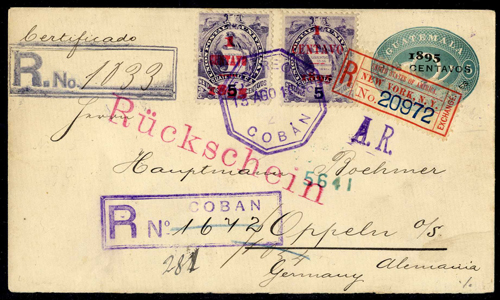 Certificado
R. No. 1033
1
CENTAVO
5
1895
1
CENTAVO
1895
5
GUATEMALA
1895
CENTAVOS
R
NEW YORK, N.Y.
No. 20972
EXCHANGE
COBÁN
Rückschein
A.R.
Herrn
Hauptmann Boehmer
5641
COBAN
R Nº 1672
Oppeln o/S.
281
Germany Alemania